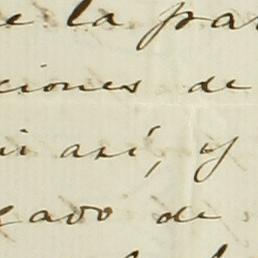 e la fra
ciones de
ni así, y
gado de